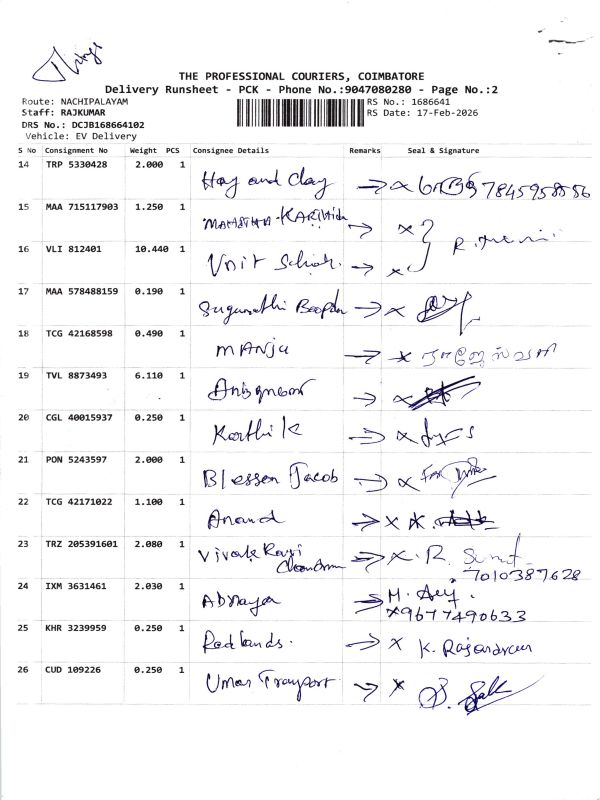 THE PROFESSIONAL COURIERS, COIMBATORE
Delivery Runsheet - PCK - Phone No.:9047080280 - Page No.:2
Route: NACHIPALAYAM
RS No.: 1686641
Staff: RAJKUMAR
RS Date: 17-Feb-2026
DRS No.: DCJB168664102
Vehicle: EV Delivery
S No Consignment No Weight PCS Consignee Details Remarks Seal & Signature
14 TRP 5330428 2.000 1 Hay and Clay → x 7845958856
15 MAA 715117903 1.250 1 → x
16 VLI 812401 10.440 1 Unit → x
17 MAA 578488159 0.190 1 → x
18 TCG 42168598 0.490 1 MANJU → x ராஜேஸ்வரி
19 TVL 8873493 6.110 1 → x
20 CGL 40015937 0.250 1 Karthik → x
21 PON 5243597 2.000 1 Blessen Jacob → x
22 TCG 42171022 1.100 1 Anand → x
23 TRZ 205391601 2.080 1 → x R.
7010387628
24 IXM 3631461 2.030 1 → M.
x9677490633
25 KHR 3239959 0.250 1 Redlands. → x K.
26 CUD 109226 0.250 1 Umar Transport → x